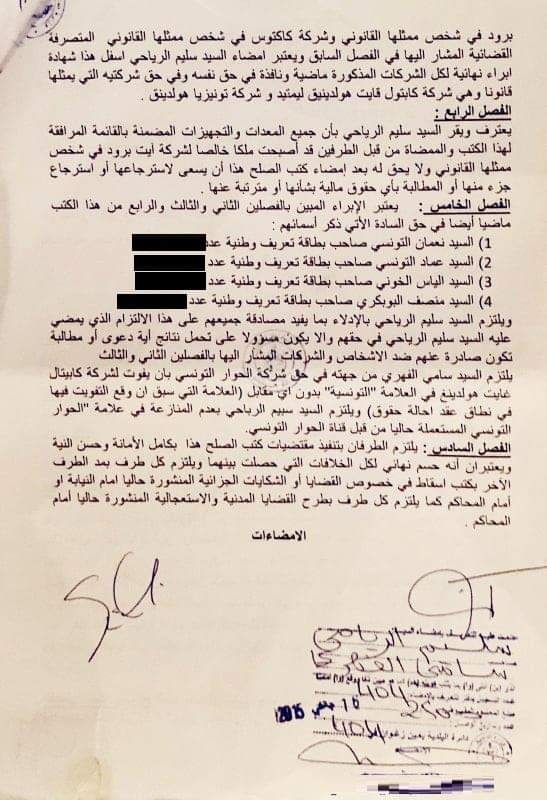 برود في شخص ممثلها القانوني وشركة كاكتوس في شخص ممثلها القانوني المتصرفة
القضائية المشار اليها في الفصل السابق ويعتبر امضاء السيد سليم الرياحي اسفل هذا شهادة
ابراء نهائية لكل الشركات المذكورة ماضية ونافذة في حق نفسه وفي حق شركتيه التي يمثلها
قانونا وهي شركة كابتول قايت هولدينيق ليمتيد و شركة تونيزيا هولدينق .
الفصل الرابع :
يعترف ويقر السيد سليم الرياحي بأن جميع المعدات والتجهيزات المضمنة بالقائمة المرافقة
لهذا الكتب والممضاة من قبل الطرفين قد أصبحت ملكا خالصا لشركة أيت برود في شخص
ممثلها القانوني ولا يحق له بعد إمضاء كتب الصلح هذا أن يسعى لاسترجاعها أو استرجاع
جزء منها أو المطالبة بأي حقوق مالية بشأنها أو مترتبة عنها .
الفصل الخامس : يعتبر الإبراء المبين بالفصلين الثاني والثالث والرابع من هذا الكتب
ماضيا أيضا في حق السادة الأتي ذكر أسمائهم :
1) السيد نعمان التونسي صاحب بطاقة تعريف وطنية عدد
2) السيد عماد التونسي صاحب بطاقة تعريف وطنية عدد
3) السيد الياس الخوني صاحب بطاقة تعريف وطنية عدد
4) السيد منصف البوبكري صاحب بطاقة تعريف وطنية عدد
ويلتزم السيد سليم الرياحي بالإدلاء بما يفيد مصادقة جميعهم على هذا الالتزام الذي يمضي
عليه السيد سليم الرياحي في حقهم والا يكون مسؤولا على تحمل نتائج أية دعوى أو مطالبة
تكون صادرة عنهم ضد الاشخاص والشركات المشار اليها بالفصلين الثاني والثالث
يلتزم السيد سامي الفهري من جهته في حق شركة الحوار التونسي بان يفوت لشركة كابيتال
غايت هولدينغ في العلامة "التونسية" بدون أي مقابل (العلامة التي سبق ان وقع التفويت فيها
في نطاق عقد احالة حقوق) ويلتزم السيد سبيم الرياحي بعدم المنازعة في علامة "الحوار
التونسي المستعملة حاليا من قبل قناة الحوار التونسي.
الفصل السادس : يلتزم الطرفان بتنفيذ مقتضيات كتب الصلح هذا بكامل الأمانة وحسن النية
ويعتبران أنه حسم نهائي لكل الخلافات التي حصلت بينهما ويلتزم كل طرف بمد الطرف
الآخر بكتب اسقاط في خصوص القضايا أو الشكايات الجزائية المنشورة حاليا امام النيابة او
أمام المحاكم كما يلتزم كل طرف بطرح القضايا المدنية والاستعجالية المنشورة حاليا أمام
المحاكم .
الامضاءات
سليم الرياحي
سامي الفهري
404
2015